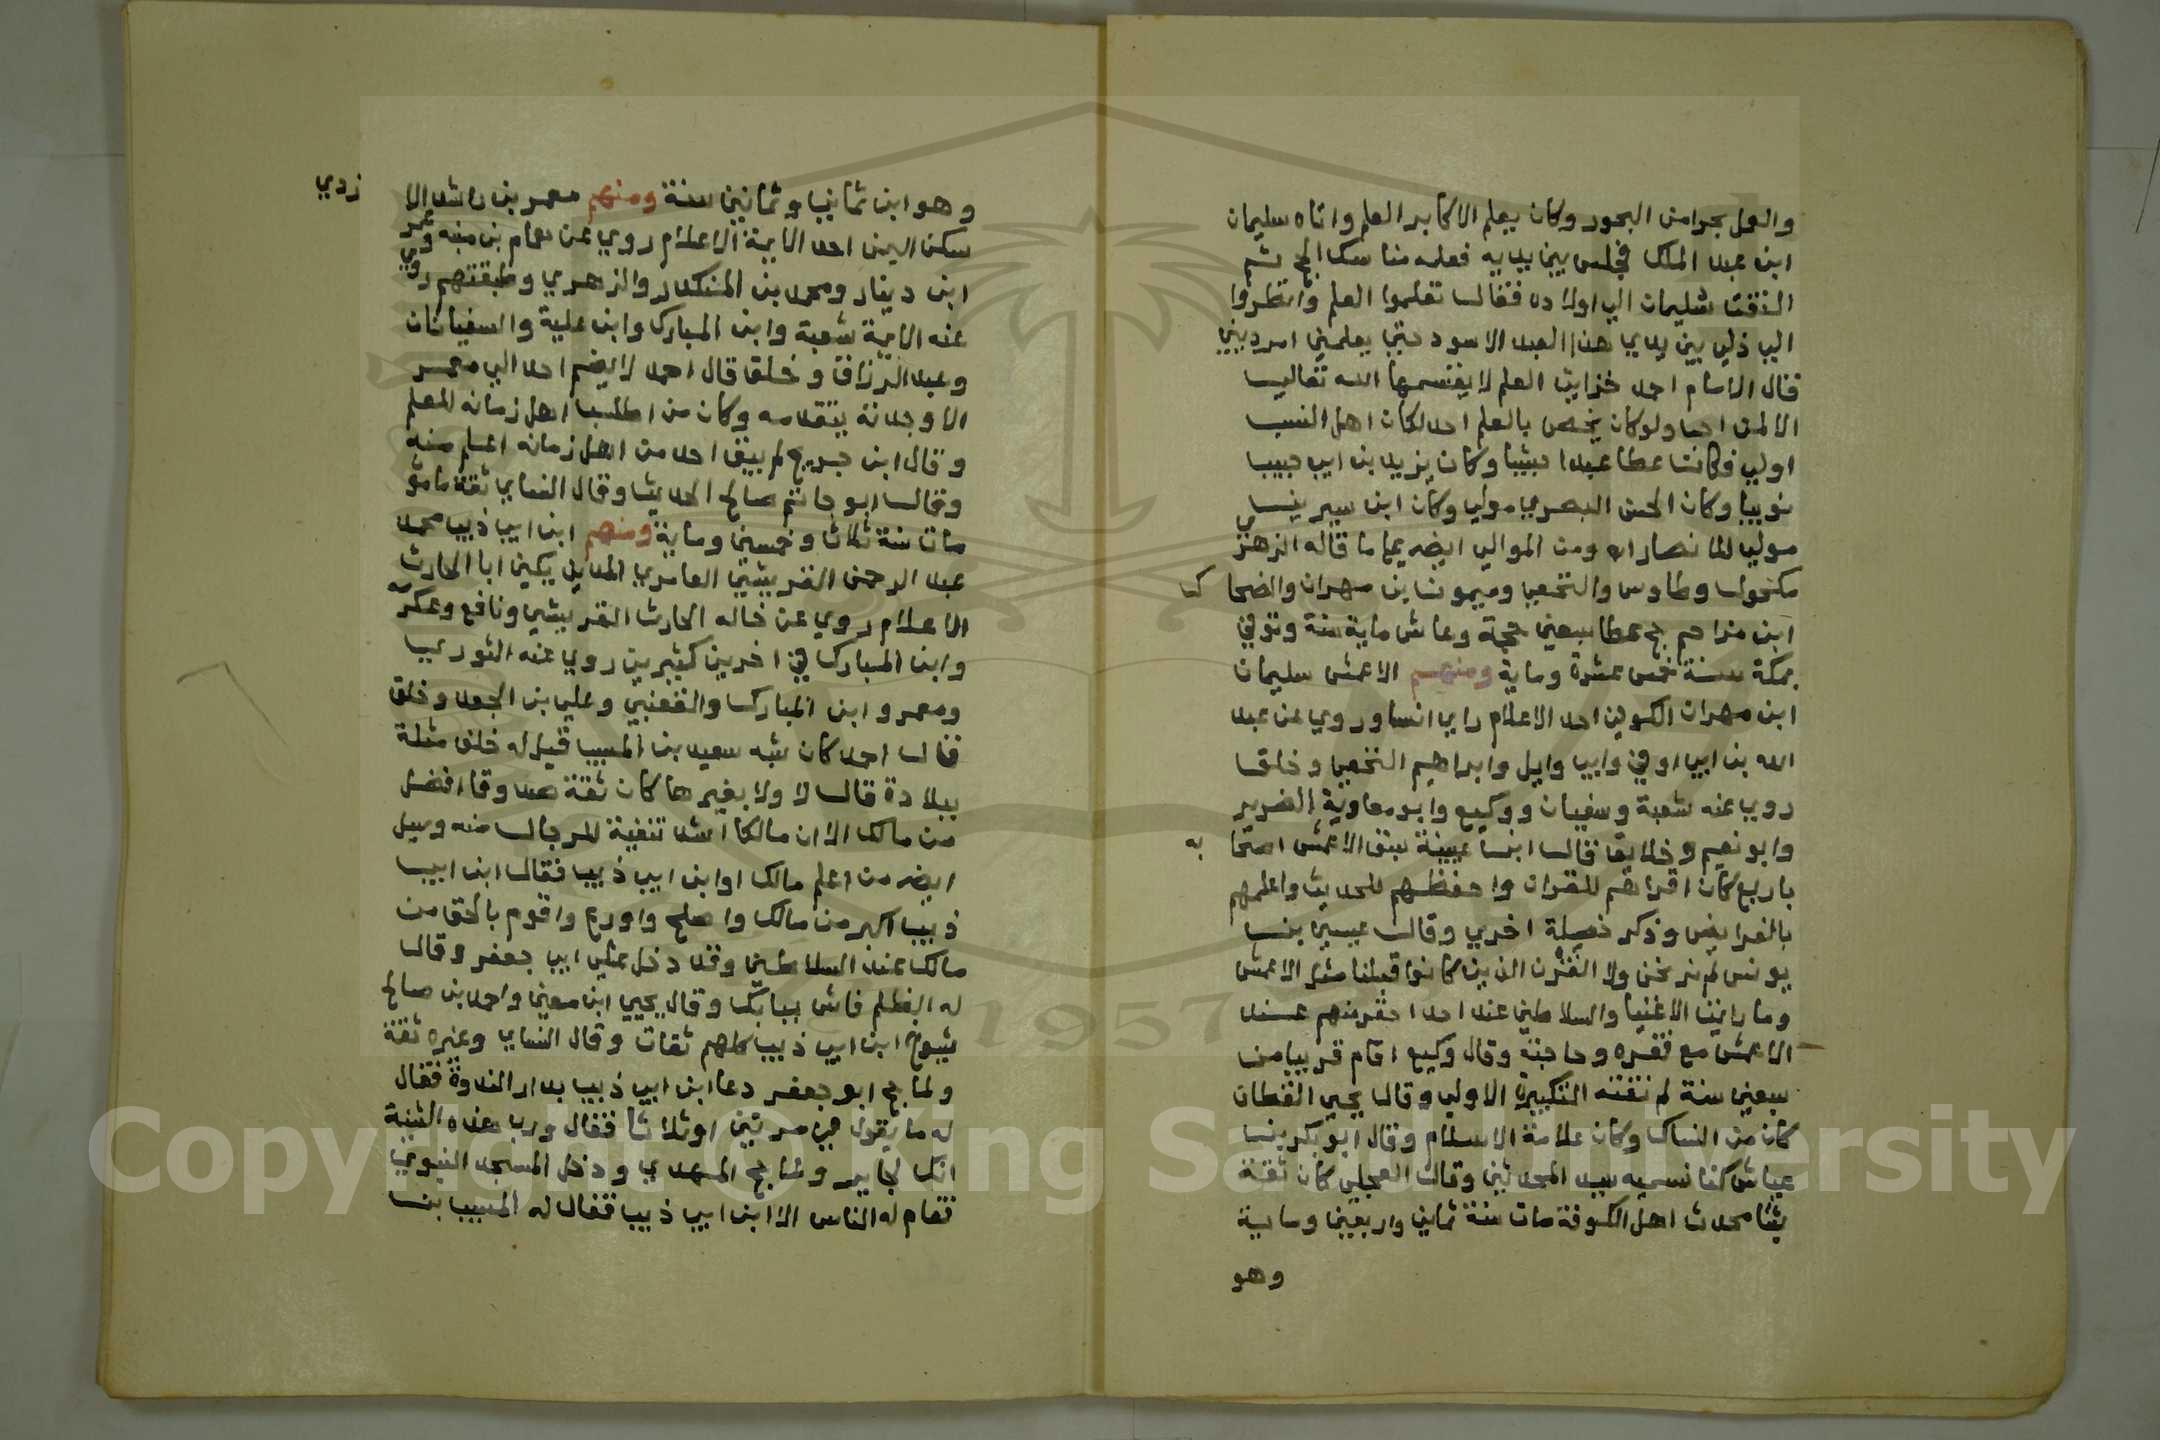 والعمل بحرا من البحور وكان يعلم الاكابر العلم واتاه سليمان
ابن عبد الملك فجلس بين يديه فعلمه مناسك الحج ثم
التفت سليمان الي اولاده فقال تعلموا العلم وانظروا
الي ذلي بين يدي هذا العبد الاسود حتي يعلمني امر ديني
قال الامام احمد خزاين العلم لا يقسمها الله تعالي
الا لمن احب ولو كان يخص بالعلم احد لكان اهل النسب
اولي فكانت عطا عبدا حبشيا وكان يزيد بن ابي حبيب
نوبيا وكان الحسن البصري مولي وكان ابن سيرين
مولي للانصار اه ومن الموالي ايضا ما قاله الزهري
مكحول وطاوس والنخعي وميمون بن مهران والضحاك
ابن مزاحم حج عطا سبعين حجة وعاش ماية سنة وتوفي
بمكة سنة خمس عشرة وماية ومنهم الاعمش سليمان
ابن مهران الكوفي احد الاعلام راي انسا وروي عن عبد
الله بن ابي اوفي وابي وايل وابراهيم النخعي وخلق
روي عنه شعبة وسفيان ووكيع وابو معاوية الضرير
وابو نعيم وخلايق قال ابن عيينة سبق الاعمش اصحابه
باربع كان اقراهم للقران واحفظهم للحديث واعلمهم
بالفرايض وذكر خصلة اخري وقال عيسي بن
يونس لم نر نحن ولا القرن الذين كانوا قبلنا مثل الاعمش
وما رايت الاغنيا والسلاطين عند احد احقر منهم عند
الاعمش مع فقره وحاجته وقال وكيع اقام قريبا من
سبعين سنة لم تفته التكبيرة الاولي وقال يحيي القطان
كان من النساك وكان علامة الاسلام وقال ابو بكر بن
عياش كنا نسميه سيد المحدثين وقال العجلي كان ثقة
ثبتا محدث اهل الكوفة مات سنة ثمان واربعين وماية
وهو
وهو ابن ثمان وثمانين سنة ومنهم معمر بن راشد الازدي
سكن اليمن احد الايمة الاعلام روي عن همام بن منبه وعمر
ابن دينار ومحمد بن المنكدر والزهري وطبقتهم روي
عنه الايمة شعبة وابن المبارك وابن علية والسفيانان
وعبد الرزاق وخلق قال احمد لا يضم احد الي معمر
الا وجدته يتقدمه وكان من اطلب اهل زمانه للعلم
وقال ابن جريج لم يبق احد من اهل زمانه اعلم منه
وقال ابو حاتم صالح الحديث وقال النساي ثقة مامو
مات سنة ثلاث وخمسين وماية ومنهم ابن ابي ذيب محمد
عبد الرحمن القريشي العامري المدني يكني ابا الحارث
الاعلام روي عن خاله الحارث القريشي ونافع وعكرمه
وابن المبارك في اخرين كثيرين روي عنه الثوري
ومعمر وابن المبارك والقعنبي وعلي بن الجعد وخلق
قال احمد كان شبه سعيد بن المسيب قيل له خلف مثلة
ببلادة قال لا ولا بغيرها كان ثقة صدوقا افضل
من مالك الا ان مالكا اشد تنقية للرجال منه وسيل
ايضا من اعلم مالك او ابن ابي ذيب فقال ابن ابي
ذيب اكبر من مالك واصلح واورع واقوم بالحق من
مالك عند السلاطين وقد دخل علي ابي جعفر وقال
له الظلم فاش ببابك وقال يحيي ابن معين واحمد بن صالح
شيوخ ابن ابي ذيب كلهم ثقات وقال النساي وغيره ثقة
ولما حج ابو جعفر دعا ابن ابي ذيب بدار الندوة فقال
له ما تقول في مرتين او ثلاثا فقال ورب هذه البنية
انك لجاير ولما حج المهدي ودخل المسجد النبوي
فقام له الناس الا ابن ابي ذيب فقال له المسيب بن
1957
Copyright © King Saud University